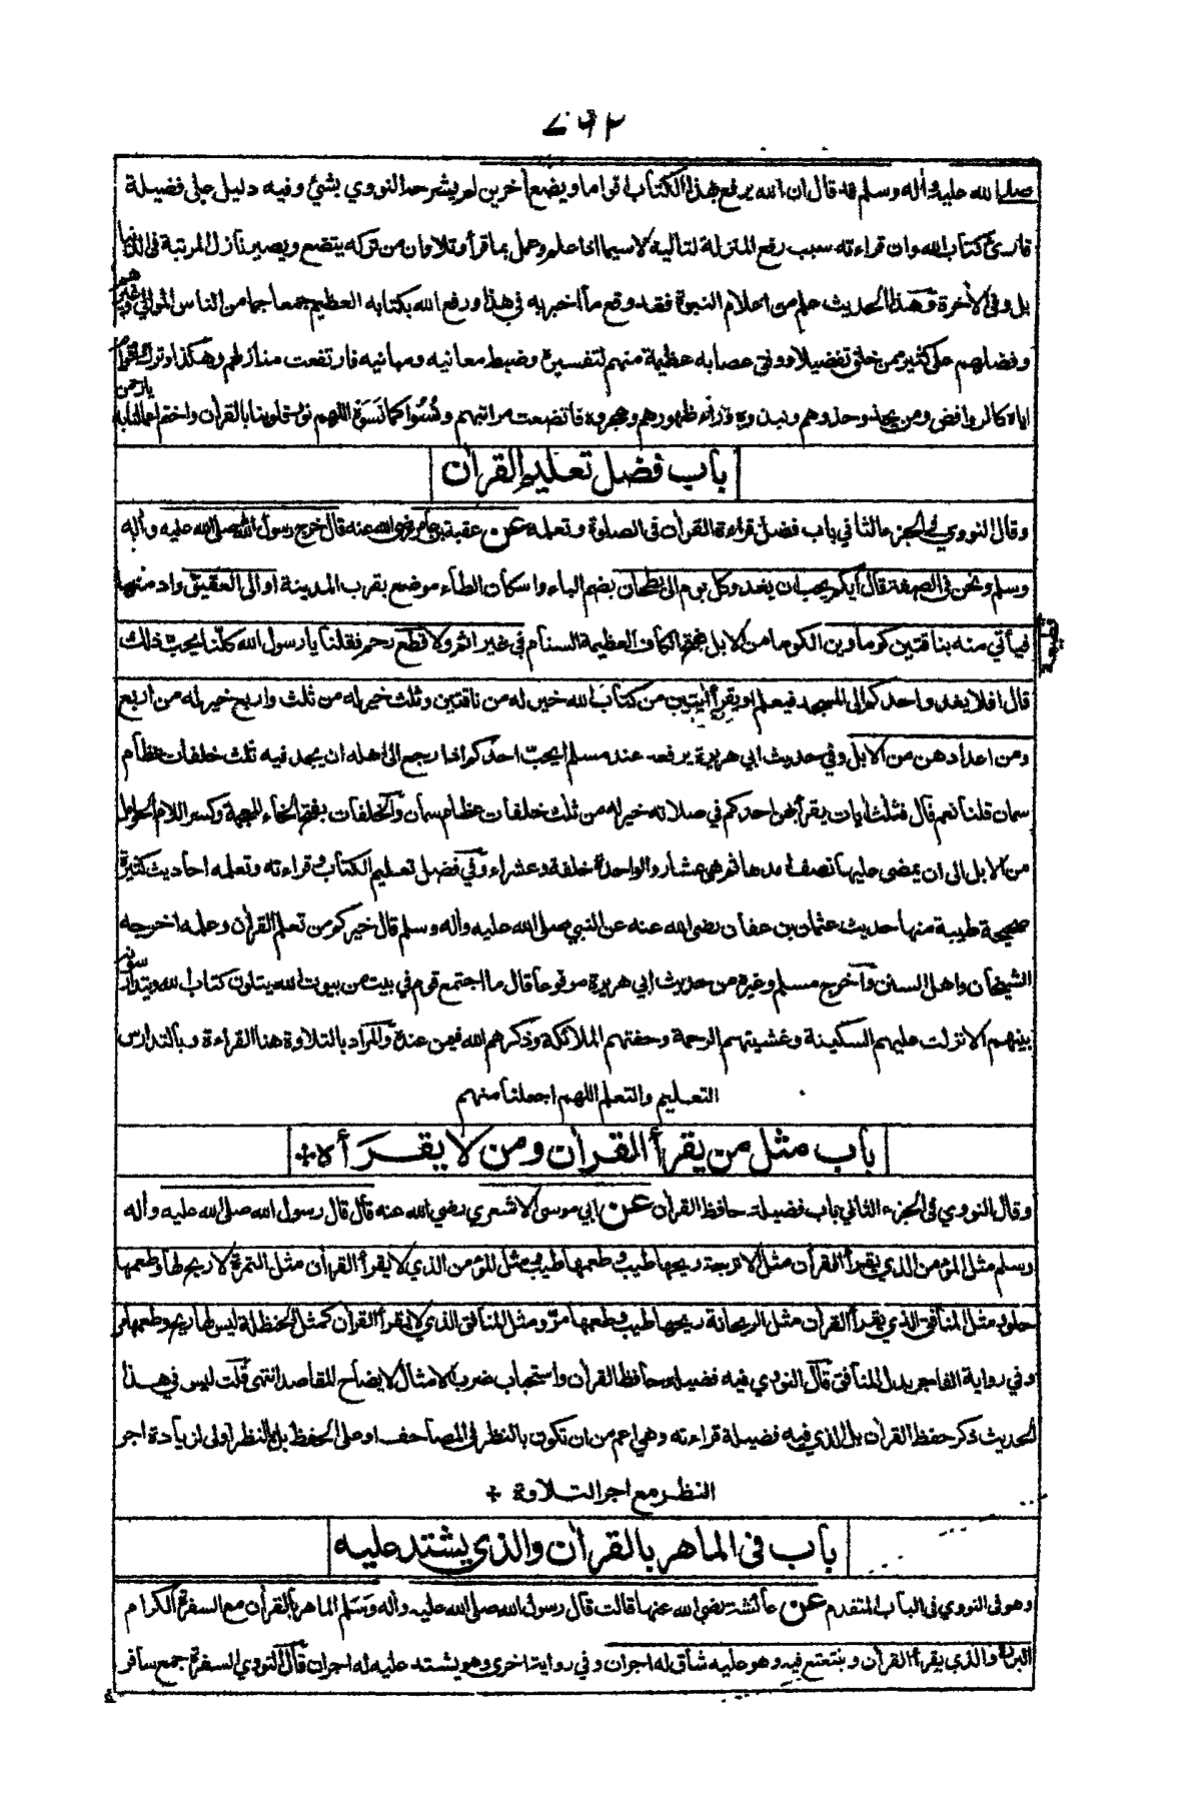 ٧٩٢
صلى الله عليه وأله وسلم قد قال ان الله يرفع بهذا الكتاب اقواما ويضع أخرين لم يشرحه النووي بشئ وفيه دليل على فضيلة
قارئ كتاب الله وان قراءته سبب رفع المنزلة لتاليه لا سيما اذا علم وعمل بما قرأ وتلا وان من تركه يتضع ويصير نازل المرتبة فى الدنيا
بل وفى الأخرة وهذا الحديث علم من اعلام النبوة فقد وقع ما اخبر به في هذا ورفع الله بكتابه العظيم جمعا جما من الناس الموالي وغيرهم
وفضلهم على كثير ممن خلق تفضيلا ووفق عصابه عظيمة منهم لتفسيره وضبط معانيه ومبانيه فارتفعت منازلهم وهكذا وترك اقوام
اياه كالروافض ومن يحذو حذوهم ونبذوه وراء ظهورهم وهجروه فاتضعت مراتبهم ونُسُوا كما نَسَوه اللهم نور قلوبنا بالقرأن واختم لنا به يا رحمن
باب فضل تعليم القرأن
وقال النووي فى الجزء الثاني باب فضل قراءة القرأن فى الصلوة وتعلمه عن عقبة بن عامر رضي الله عنه قال خرج رسول الله صلى الله عليه وأله
وسلم ونحن فى الصفة فقال أيكم يحب ان يغدو كل يوم الى بطحان بضم الباء واسكان الطاء موضع بقرب المدينة او الى العقيق واد منها
فيأتي منه بناقتين كوماوين الكوما من الابل بفتح الكاف العظيمة السنام في غير اثم ولا قطع رحم فقلنا يا رسول الله كلنا يحب ذلك
قال افلا يغدو احدكم الى المسجد فيعلم او يقرأ أيتين من كتاب الله خير له من ناقتين وثلث خير له من ثلث واربع خير له من اربع
ومن اعدادهن من الابل وفي حديث ابي هريرة يرفعه عند مسلم ايحب احدكم اذا رجع الى اهله ان يجد فيه ثلث خلفات عظام
سمان قلنا نعم قال فثلث أيات يقرأ بهن احدكم في صلاته خير له من ثلث خلفات عظام سمان والخلفات بفتح الخاء المعجمة وكسر اللام الحوامل
من الابل الى ان يمضى عليها نصف امدها ثم هي عشار والواحدة خلفة وعشراء وفي فضل تعليم الكتاب وقراءته وتعلمه احاديث كثيرة
صحيحة طيبة منها حديث عثمان بن عفان رضي الله عنه عن النبي صلى الله عليه وأله وسلم قال خيركم من تعلم القرأن وعلمه اخرجه
الشيخان واهل السنن وأخرج مسلم وغيره من حديث ابي هريرة مرفوعا قال ما اجتمع قوم في بيت من بيوت الله يتلون كتاب الله ويتدارسونه
بينهم الا نزلت عليهم السكينة وغشيتهم الرحمة وحفتهم الملائكة وذكرهم الله فيمن عنده والمراد بالتلاوة هنا القراءة وبالتدارس
التعليم والتعلم اللهم اجعلنا منهم
باب مثل من يقرأ القرأن ومن لا يقرأه
وقال النووي فى الجزء الثاني باب فضيلة حافظ القرأن عن ابي موسى الاشعري رضي الله عنه قال قال رسول الله صلى الله عليه وأله
وسلم مثل المؤمن الذي يقرأ القرأن مثل الاترجة ريحها طيب وطعمها طيب ومثل المؤمن الذي لا يقرأ القرأن مثل التمرة لا ريح لها وطعمها
حلو ومثل المنافق الذي يقرأ القرأن مثل الريحانة ريحها طيب وطعمها مر ومثل المنافق الذي لا يقرأ القرأن كمثل الحنظلة ليس لها ريح وطعمها مر
وفي رواية الفاجر بدل المنافق قال النووي فيه فضيلة حافظ القرأن واستحباب ضرب الامثال لايضاح المقاصد انتهى قلت ليس في هذا
الحديث ذكر حفظ القرأن بل الذي فيه فضيلة قراءته وهي اعم من ان تكون بالنظر فى المصاحف او على الحفظ بل بالنظر اولى لزيادة اجر
النظر مع اجر التلاوة
باب فى الماهر بالقرأن والذي يشتد عليه
وهو فى النووي فى الباب المتقدم عن عائشة رضي الله عنها قالت قال رسول الله صلى الله عليه وأله وسلم الماهر بالقرأن مع السفرة الكرام
البررة والذي يقرأ القرأن ويتتعتع فيه وهو عليه شاق له اجران وفي رواية اخرى وهو يشتد عليه له اجران قال النووي السفرة جمع سافر